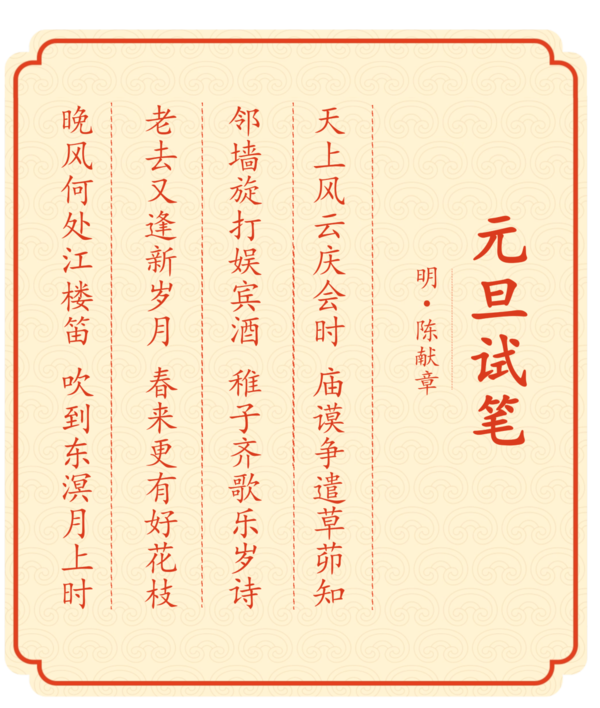 元旦试笔
明·陈献章
天上风云庆会时 庙谟争遣草茆知
邻墙旋打娱宾酒 稚子齐歌乐岁诗
老去又逢新岁月 春来更有好花枝
晚风何处江楼笛 吹到东溟月上时